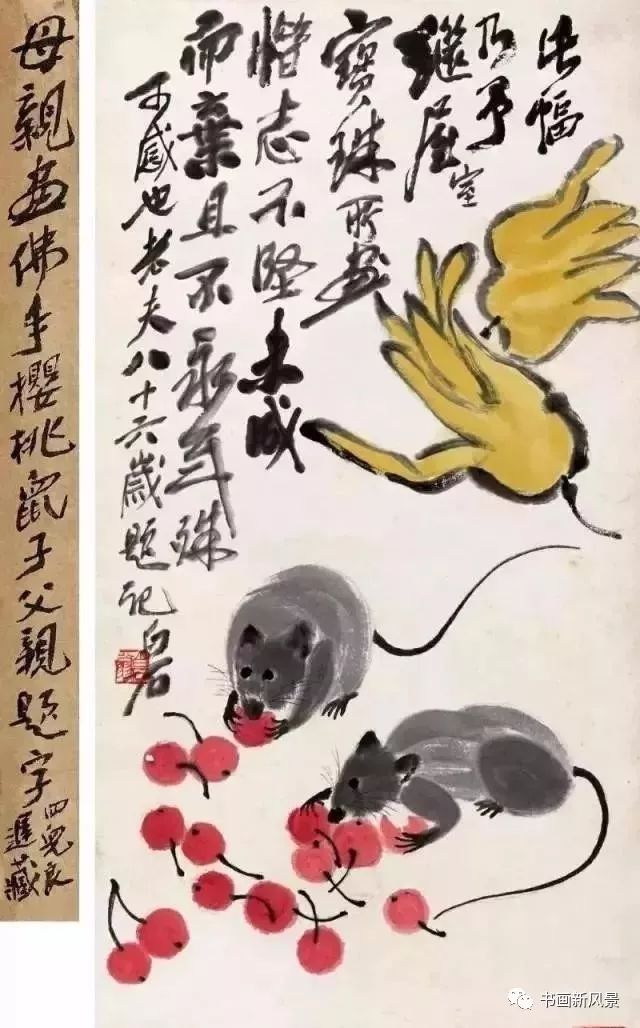 此幅
乃予
繼室
寶珠所畫
惜志不堅未成
而棄且不永年殊
可感也老夫八十六歲題記白石
母親畫佛手櫻桃鼠子父親題字
四兒良
遲藏
书画新风景